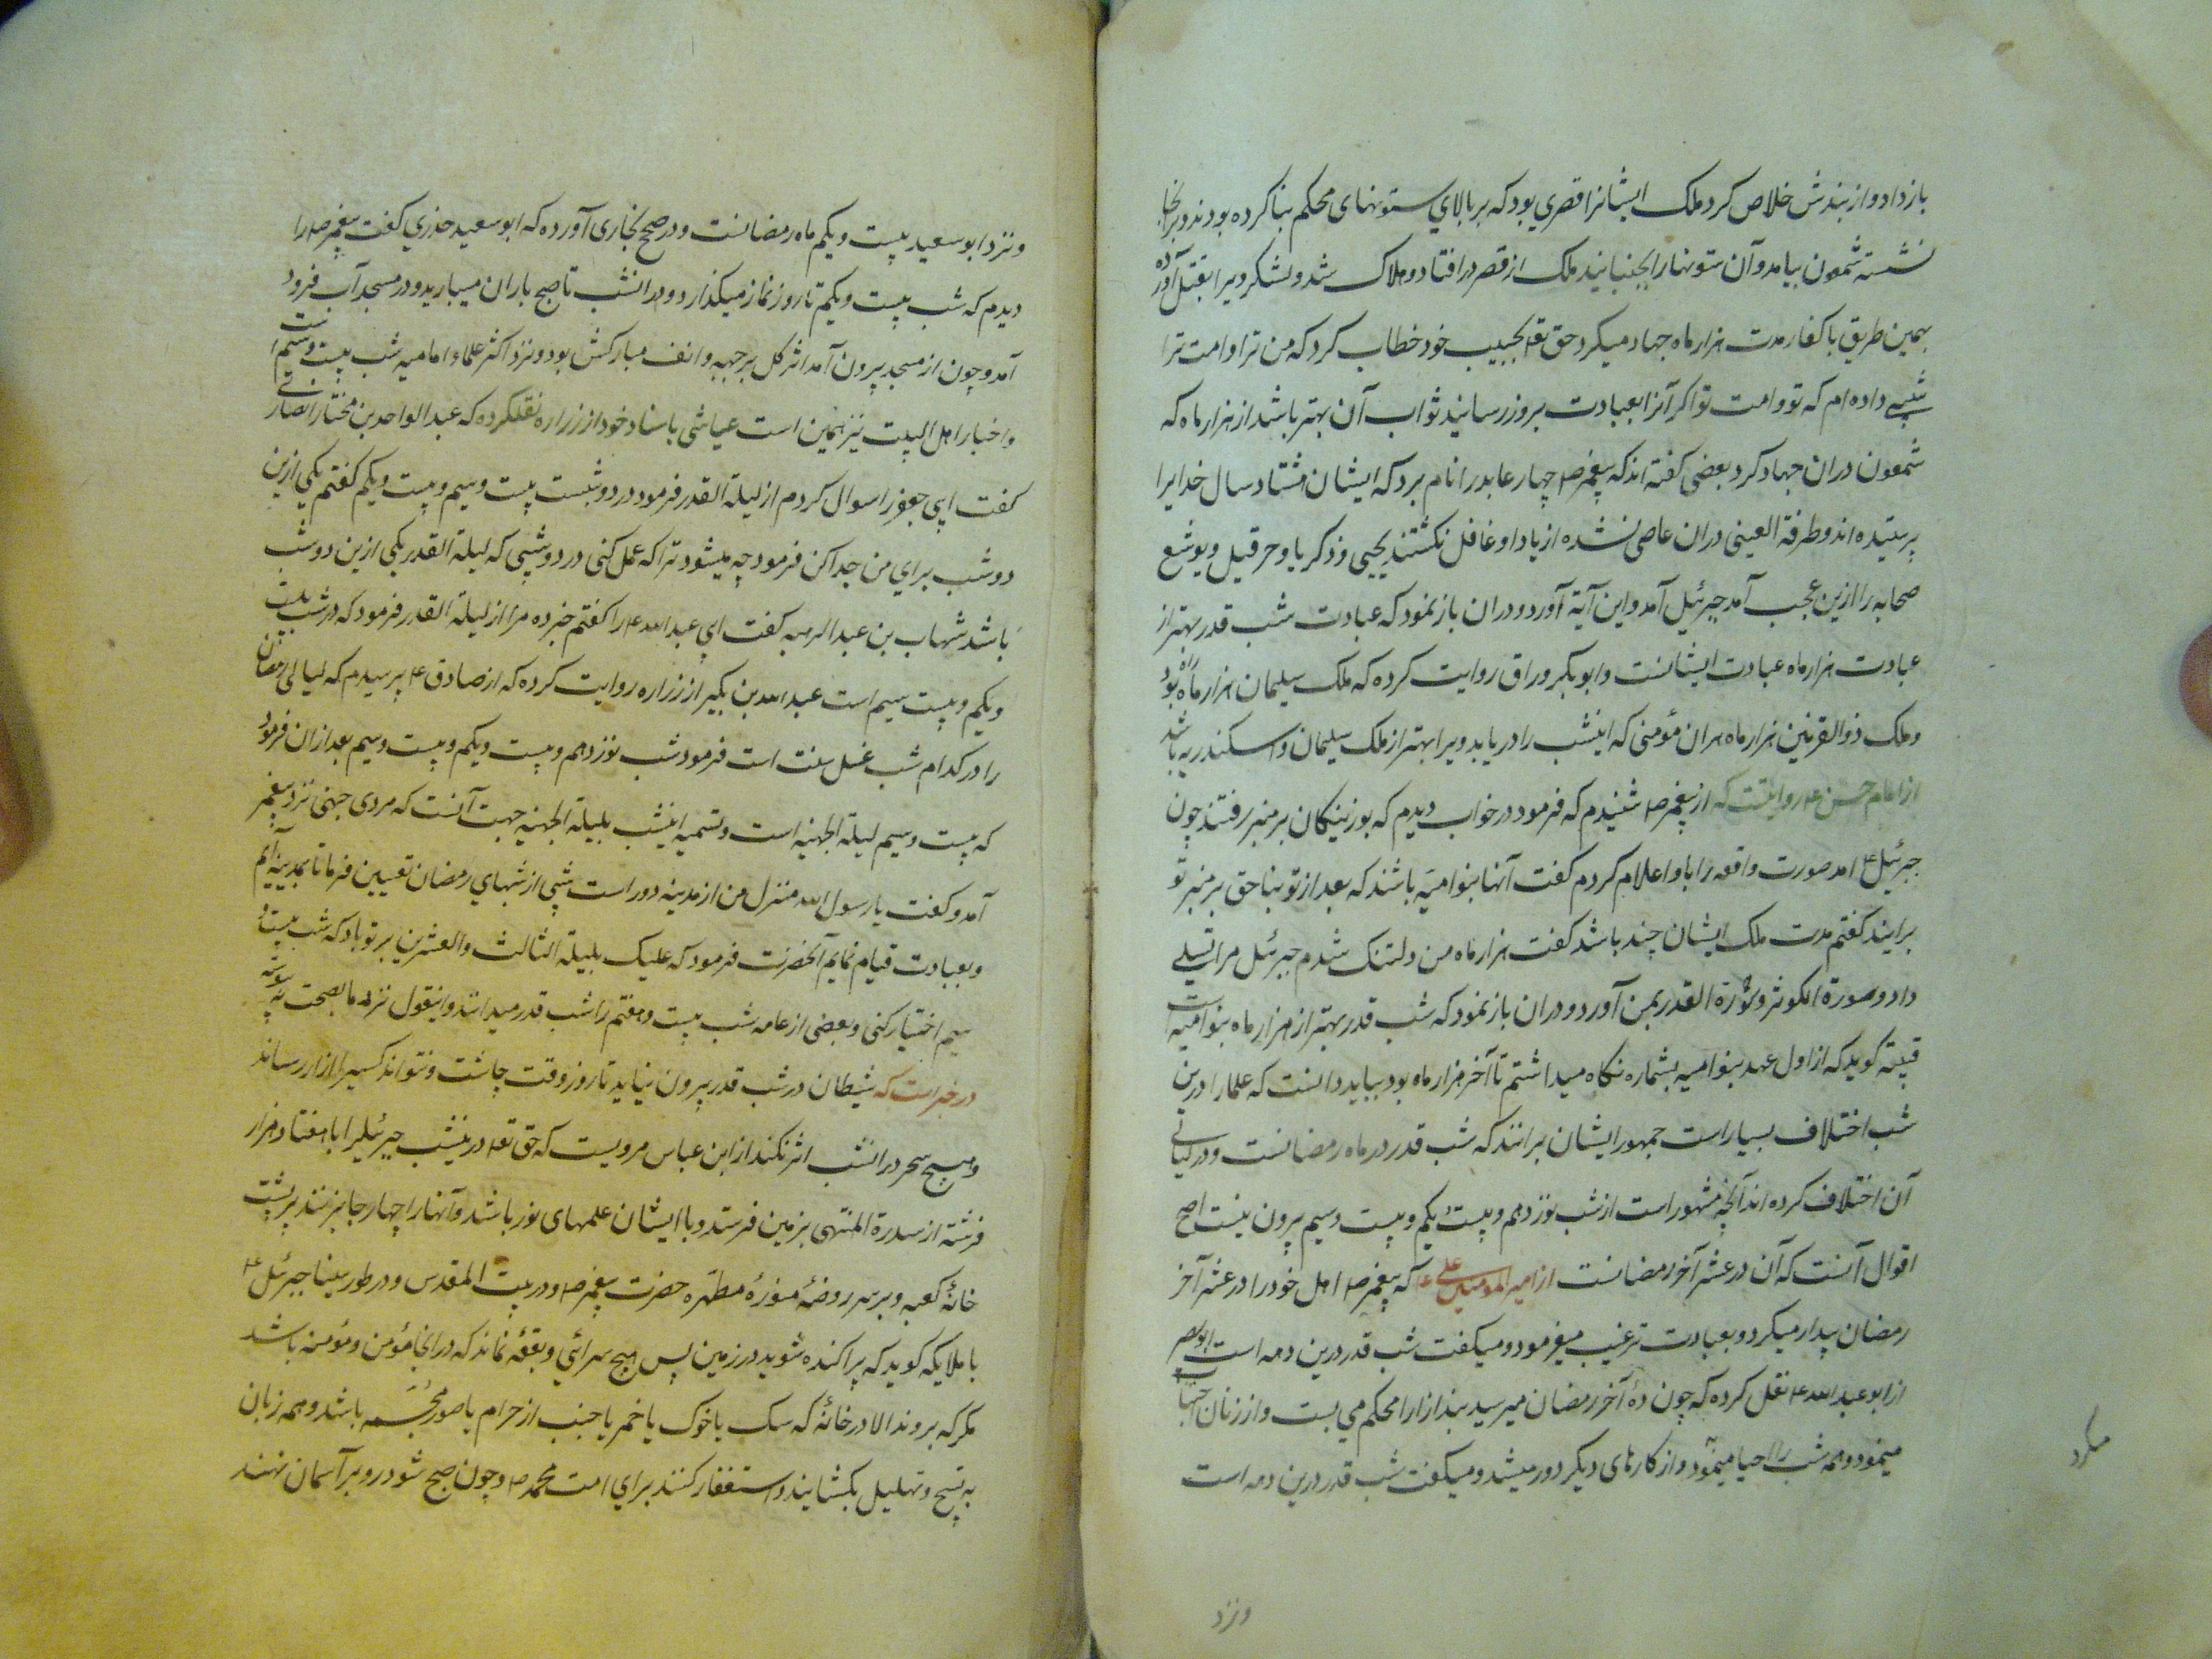 باز داد و از بندش خلاص کرد ملک ایشانرا قصری بود که بر بالای ستونهای محکم بنا کرده بودند و بر آنجا
نشسته شمعون بیامد و آن ستونها را بجنبانید ملک از قصر در افتاد و هلاک شد و لشکر ویرا بقتل آورده
بهمین طریق با کفار مدت هزار ماه جهاد میکرد حق تعا بحبیب خود خطاب کرد که من ترا و امت ترا
شبی داده ام که تو و امت تو اگر آنرا بعبادت بروز رسانید ثواب آن بهتر باشد از هزار ماه که
شمعون دران جهاد کرد بعضی گفته اند که پیغمبر ص چهار عابد را نام برد که ایشان هشتاد سال خدایرا
پرستیده اند و طرفة العینی دران عاصی نشده از یاد او غافل نگشتند یحیی و ذکریا و حزقیل و یوشع
صحابه را ازین عجب آمد جبرئیل آمد و این آیة آورد و دران باز نمود که عبادت شب قدر بهتر از
عبادت هزار ماه عبادت ایشانست و ابوبکر وراق روایت کرده که ملک سلیمان هزار ماه راه بود
و ملک ذوالقرنین هزار ماه هران مؤمنی که اینشب را دریابد ویرا بهتر از ملک سلیمان و اسکندریه باشد
از امام حسن ع روایتست که از پیغمبر ص شنیدم که فرمود در خواب دیدم که بوزینکان بر منبر رفتند چون
جبرئیل ع امد صورت واقعه را با و اعلام کردم گفت آنها بنوامیه باشند که بعد از تو بناحق بر منبر تو
برایند گفتم مدت ملک ایشان چند باشد گفت هزار ماه من دلتنک شدم جبرئیل مرا تسلی
داد و صورة الکوثر و سورة القدر بمن آورد و دران باز نمود که شب قدر بهتر از هزار ماه بنوامیه است
قیته گوید که از اول عهد بنوامیه بشماره نگاه میداشتم تا آخر هزار ماه بود بباید دانست که علما را درین
شب اختلاف بسیار است جمهور ایشان برانند که شب قدر در ماه رمضانست و در لیالی
آن اختلاف کرده اند آنچه مشهور است از شب نوزدهم و بیست یکم و بیست و سیم بیرون نیست اصح
اقوال آنست که آن در عشر آخر رمضانست از امیر المومنین علی ع که پیغمبر ص اهل خود را در عشر آخر
رمضان بیدار میکرد و بعبادت ترغیب میفرمود و میگفت شب قدر درین دهه است ابوبصیر
از ابو عبدالله ع نقل کرده که چون دهٔ آخر رمضان میرسید بند ازار را محکم می بست و از زنان اجتناب
مینمود و همه شب را احیا مینمود و از کارهای دیگر دور میشد و میگفت شب قدر درین دهه است
میکرد
و نزد
و نزد ابو سعید بیست و یکم ماه رمضانست و در صحیح بخاری آورده که ابو سعید خدری گفت پیغمبر ص را
دیدم که شب بیست و یکم تا روز نماز میگذارد و درانشب تا صبح باران میبارید و در مسجد آب فرود
آمد و چون از مسجد بیرون آمد اثر گل بر جبهه و انف مبارکش بود و نزد اکثر علماء امامیه شب بیست و سیم است
و اخبار اهل البیت نیز همین است عیاشی باسناد خود از زراره نقلکرده که عبدالواحد بن مختار انصاری
گفت ابی جعفر را سوال کردم از لیلة القدر فرمود در دو شبست بیست و سیم و بیست و یکم گفتم یکی ازین
دو شب برای من جدا کن فرمود چه میشود ترا که عمل کنی در دو شبی که لیلة القدر یکی ازین دو شب
باشد شهاب بن عبد الربه گفت ابی عبدالله ع را گفتم خبر ده مرا از لیلة القدر فرمود که در شب بیست
و یکم و بیست سیم است عبدالله بن بکیر از زراره روایت کرده که از صادق ع پرسیدم که لیالی رمضان
را در کدام شب غسل سنت است فرمود شب نوزدهم و بیست و یکم و بیست و سیم بعد ازان فرمود
که بیست و سیم لیلة الجهنیه است و تسمیه اینشب بلیلة الجهنیه جهت آنست که مردی جهنی نزد پیغمبر
آمد و گفت یا رسول الله منزل من از مدینه دور است شبی از شبهای رمضان تعیین فرما تا بمدینه آیم
و بعبادت قیام نمایم آنحضرت فرمود که علیک بلیلة الثالث والعشرین بر تو باد که شب بیست و
سیم اختیار کنی و بعضی از عامه شب بیست و هفتم را شب قدر میدانند و اینقول نزد ما بصحت نه پیوسته
در خبر است که شیطان در شب قدر بیرون نیاید تا روز وقت چاشت و نتواند کسیرا ازار رساند
و هیچ سحر درانشب اثر نکند از ابن عباس مرویست که حق تعا درینشب جبرئیلرا با هفتاد هزار
فرشته از سدرة المنتهی بزمین فرستد و با ایشان علمهای نور باشد و آنها را چهار جا بزنند بر پشت
خانهٔ کعبه و بر سر روضهٔ منورهٔ مطهره حضرت پیغمبر ص و در بیت المقدس و در طور سینا جبرئیل ع
با ملایکه گوید که پراکنده شوید در زمین پس هیچ سرائی و بقعهٔ نماند که در انجا مؤمن و مؤمنه باشد
مگر که بروند الا در خانهٔ که سک یا خوک یا خمر یا جنب از حرام یا صور مجسمه باشد و همه زبان
به تسبیح و تهلیل بگشایند و استغفار کنند برای امت محمد ص و چون صبح شود رو بر آسمان نهند